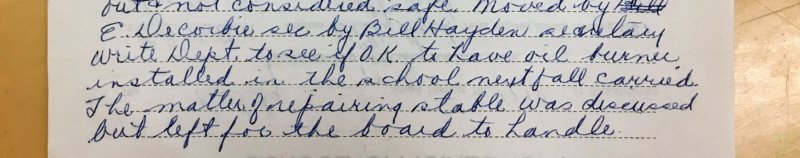 out & not considered safe. Moved by Bill
E. Decorbie sec by Bill Hayden secretary
write Dept. to see if O.K. to have oil burner
installed in the school next fall carried.
The matter of repairing stable was discussed
but left for the board to handle.